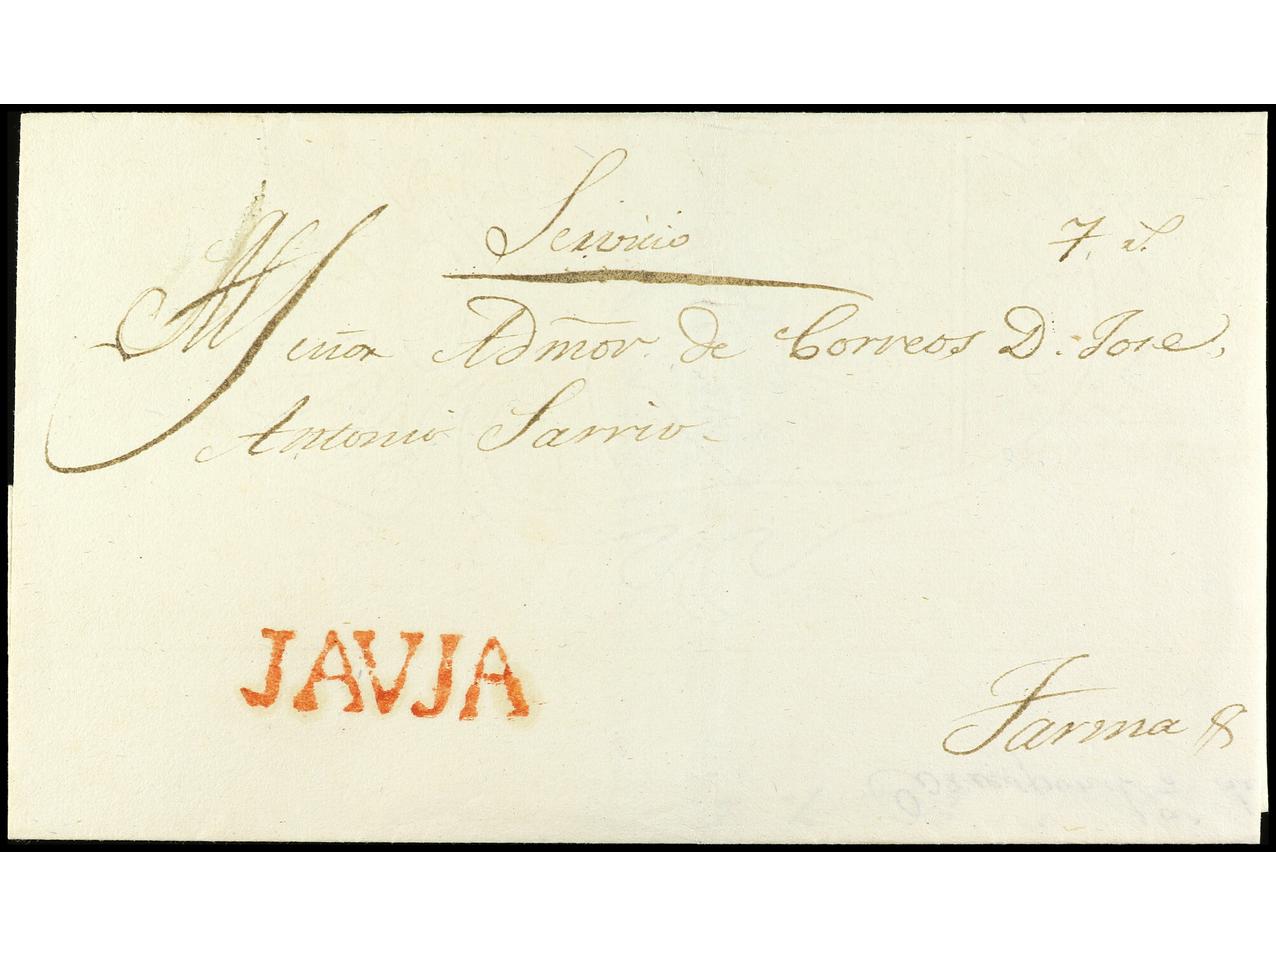 Servicio 7. rs.
Señor Admōr. de Correos D. Jose,
Antonio Sarrio.
JAVJA
Tarma &